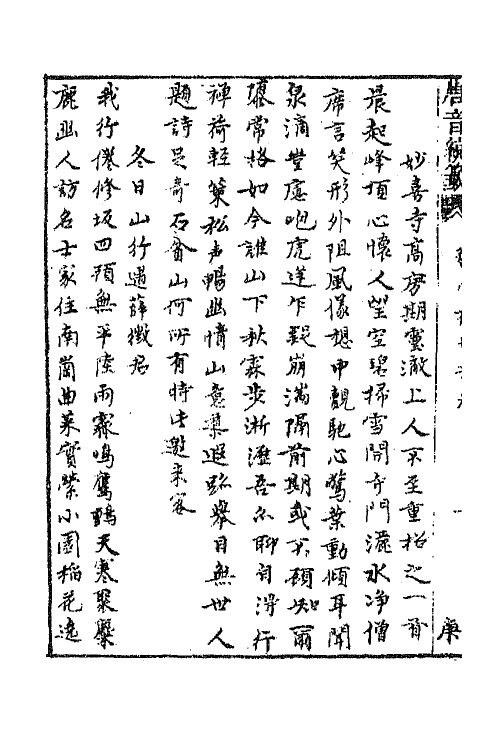 唐音統籤
妙喜寺高房期靈澈上人不至重招之一首
晨起峰頂心懷人望空碧掃雪開寺門灑水淨僧
席言笑形外阻風儀想中覿馳心驚葉動傾耳聞
泉滴豈慮咆虎逢乍疑崩湍隔前期或不顧知爾
隳常格如今誰山下秋霖步淅瀝吾亦聊自得行
禪荷輕策松声暢幽情山意導遐跡舉目無世人
題詩足奇石賓山何所有時此邀来客
冬日山行過薛徵君
我行倦修坂四顧無平陸雨霽鳴鷹鶴天寒聚麋
鹿幽人訪名士家住南崗曲菜實縈小園稻花遶
庚